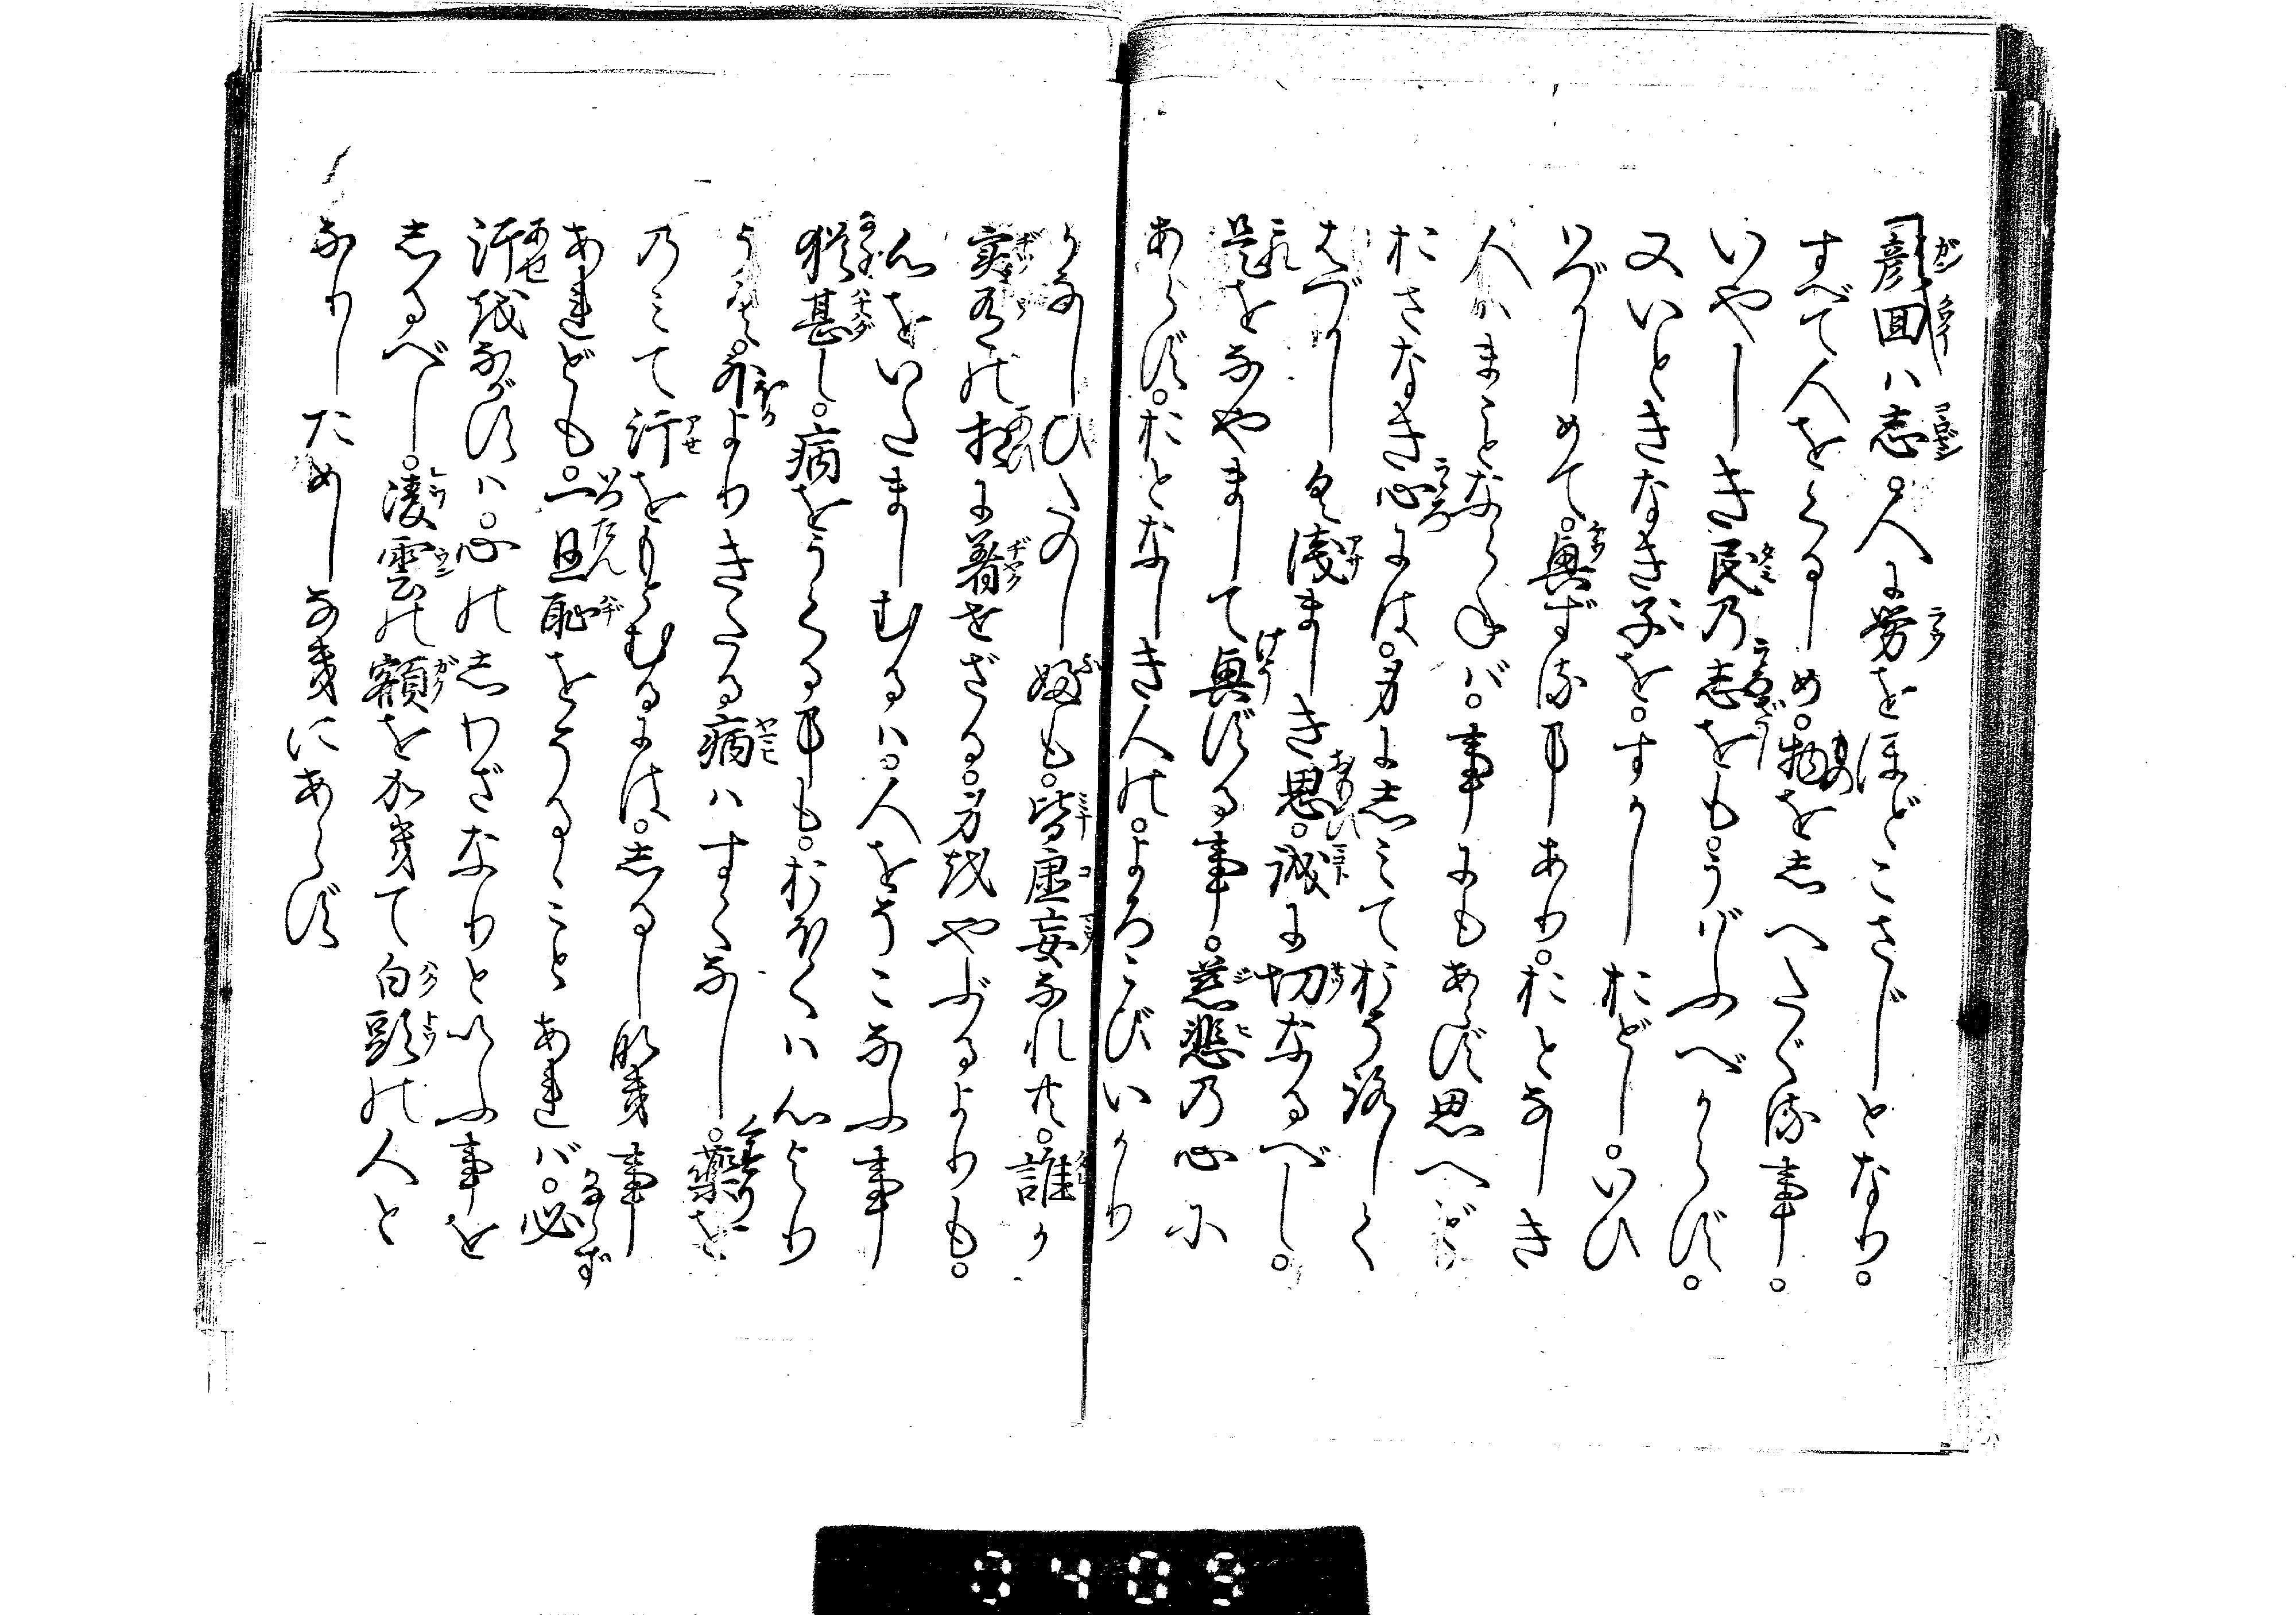 顔回ハ志。人に労をほどこさじとなり。
すべて人をくるしめ。物をしへたぐる事。
いやしき民の志をも。うばふべからず。
又いときなき子を。すかしおどし。いひ
はづかしめて。興ずる事あり。おとなしき
人ハまことならねバ。事にもあらず思へど
おさなき心には。身にしみておそろしく
はづかしく浅ましき思。誠に切なるべし。
是をなやまして興ずる事。慈悲の心に
あらず。おとなしき人の。よろこびいかり
かなしひたのしふも。皆虚妄なれ共。誰か
実有の相に着せざる。身をやぶるよりも。
心をいたましむるハ。人をそこなふ事
猶甚し。病をうくる事も。おほくハ心より
うく。外よりきたる病ハすくなし。薬を
のみて汗をもとむるには。しるしなき事
あれども。一旦恥をそるゝことあれバ。必
汗をながすハ。心のしわざなりといふ事を
しるべし。凌雲の額をかきて白頭の人と
なりしためしなきにあらず